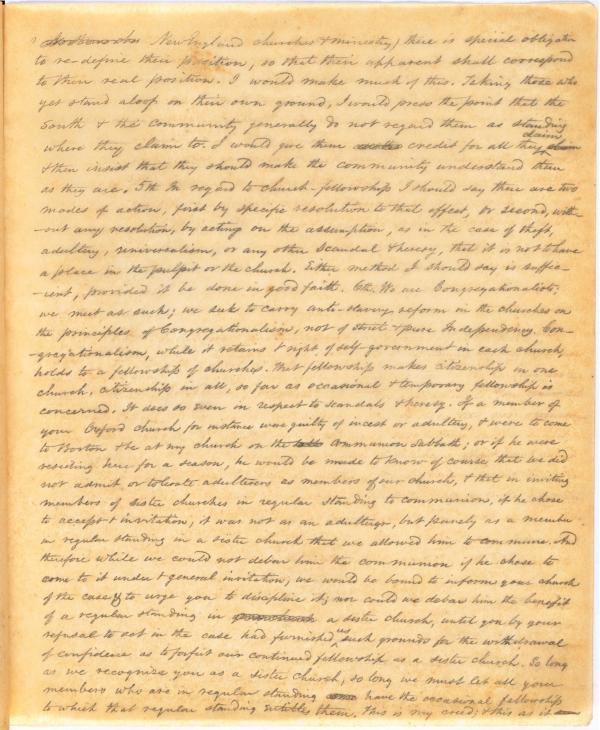 New England churches & ministry) there is special obligation
to re-define their position, so that their apparent shall correspond
to their real position. I would make much of this. Taking those who
yet stand aloof on their own ground, I would press the point that the
South & the community generally do not regard them as standing
where they claim to. I would give them credit for all they claim
& then insist that they should make the community understand them
as they are. 5th In regard to church-fellowship I should say there are two
modes of action, first by specific resolution to that effect, or second, with-
-out any resolution, by acting on the assumption, as in the case of theft,
adultery, universalism, or any other scandal & heresy, that it is not to have
a place in the pulpit or the church. Either method I should say is suffic-
-ient, provided it be done in good faith. 6th. We are Congregationalists;
we meet as such; we seek to carry anti-slavery reform in the churches on
the principles of Congregationalism, not of strict & pure Independency. Con-
-gregationalism, while it retains & right of self-government in each church,
holds to a fellowship of churches. That fellowship makes citizenship in one
church, citizenship in all, so far as occasional & temporary fellowship is
concerned. It does so even in respect to scandals & heresy. If a member of
your Oxford church for instance was guilty of incest or adultery, & were to come
to Boston & be at my church on the communion Sabbath; or if he were
residing here for a season, he would be made to know of course that we did
not admit or tolerate adulterers as members of our church, & that in inviting
members of sister churches in regular standing to communion, if he chose
to accept & invitation, it was not as an adulterer, but purely as a member
in regular standing in a sister church that we allowed him to commune. And
therefore while we could not debar him the communion if he chose to
come to it under & general invitation, we would be bound to inform your church
of the case & to urge you to discipline it; nor could we debar him the benefit
of a regular standing in a sister church, until you by your
refusal to act in the case had furnished us such grounds for the withdrawal
of confidence as to forfeit our continued fellowship as a sister church. So long
as we recognize you as a sister church, so long we must let all your
members who are in regular standing have the occasional fellowship
to which that regular standing entitles them. This is my creed; & this as it